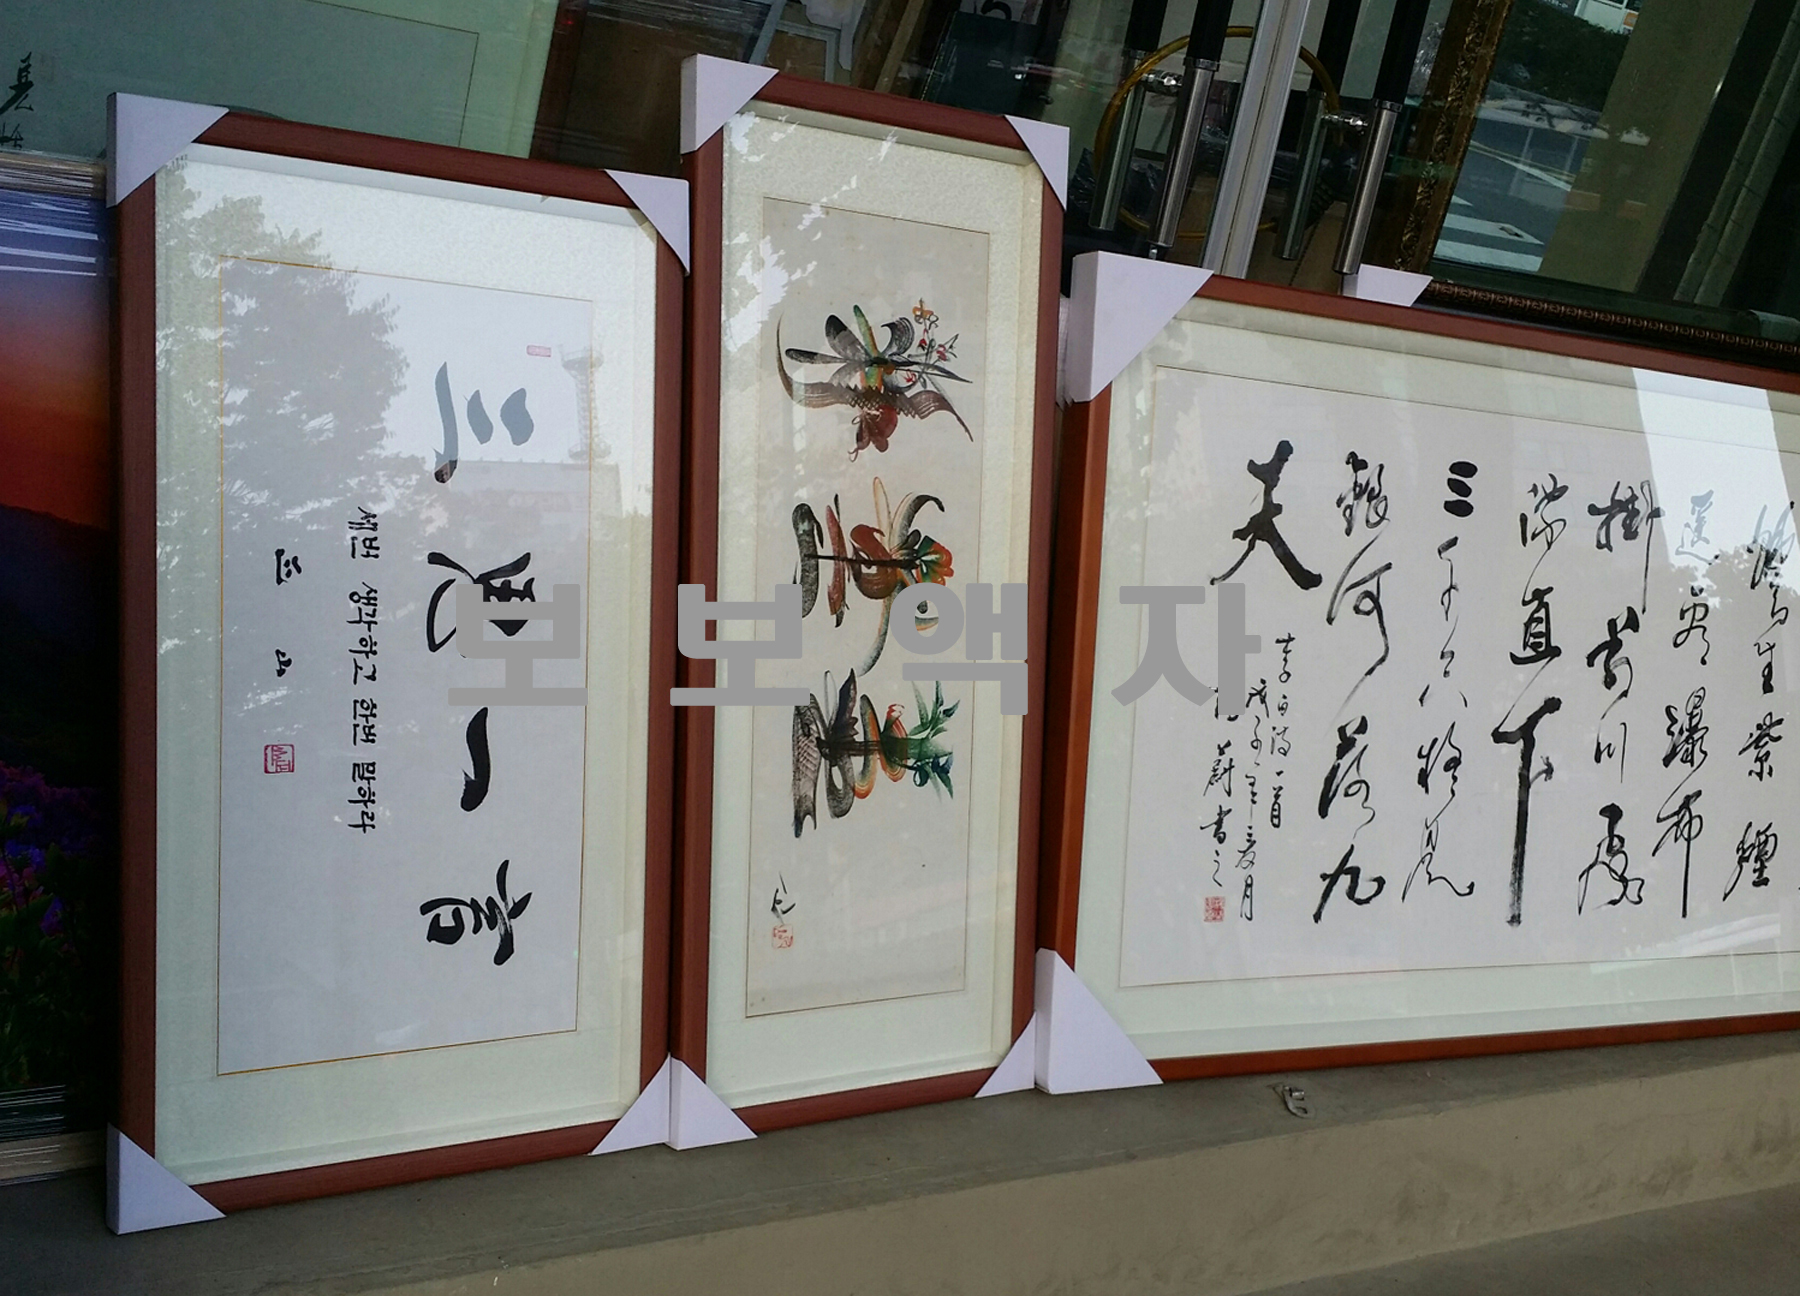 三思一言
세번 생각하고 한번 말하라
爐生紫煙
遙看瀑布
掛前川飛
流直下
三千尺疑是
銀河落九
天
李白詩一首
書之
보보액자